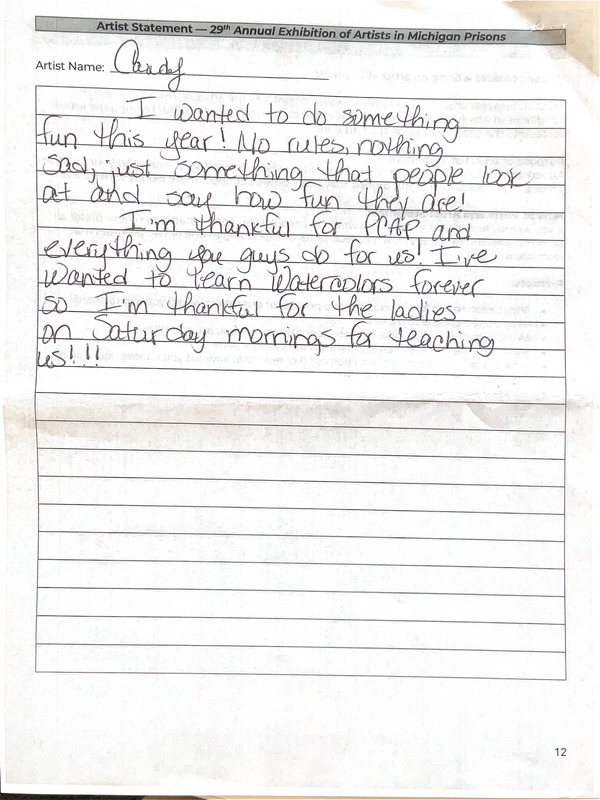 Artist Statement — 29th Annual Exhibition of Artists in Michigan Prisons
Artist Name: Candy
I wanted to do something
fun this year! No rules, nothing
sad, just something that people look
at and say how fun they are!
I'm thankful for PCAP and
everything you guys do for us! I've
wanted to learn watercolors forever
so I'm thankful for the ladies
on Saturday mornings for teaching
us!!!
12